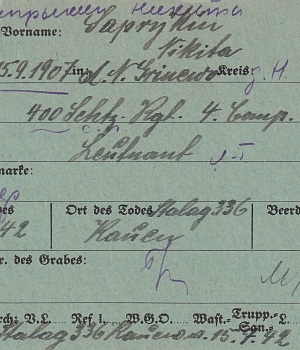 Saprykin
Vorname: Nikita
15.9.1907 in: Kreis:
400 Schtz. Rgt. 4. Comp.
Leutnant л-т
marke:
es Ort des Todes Stalag 336 Beerd
42 Kauen
r. des Grabes:
rch: V.L. Ref I. W.G.O. Wast.- Trupp.- San.- L.
Stalag 336 Kauen 15.7.42